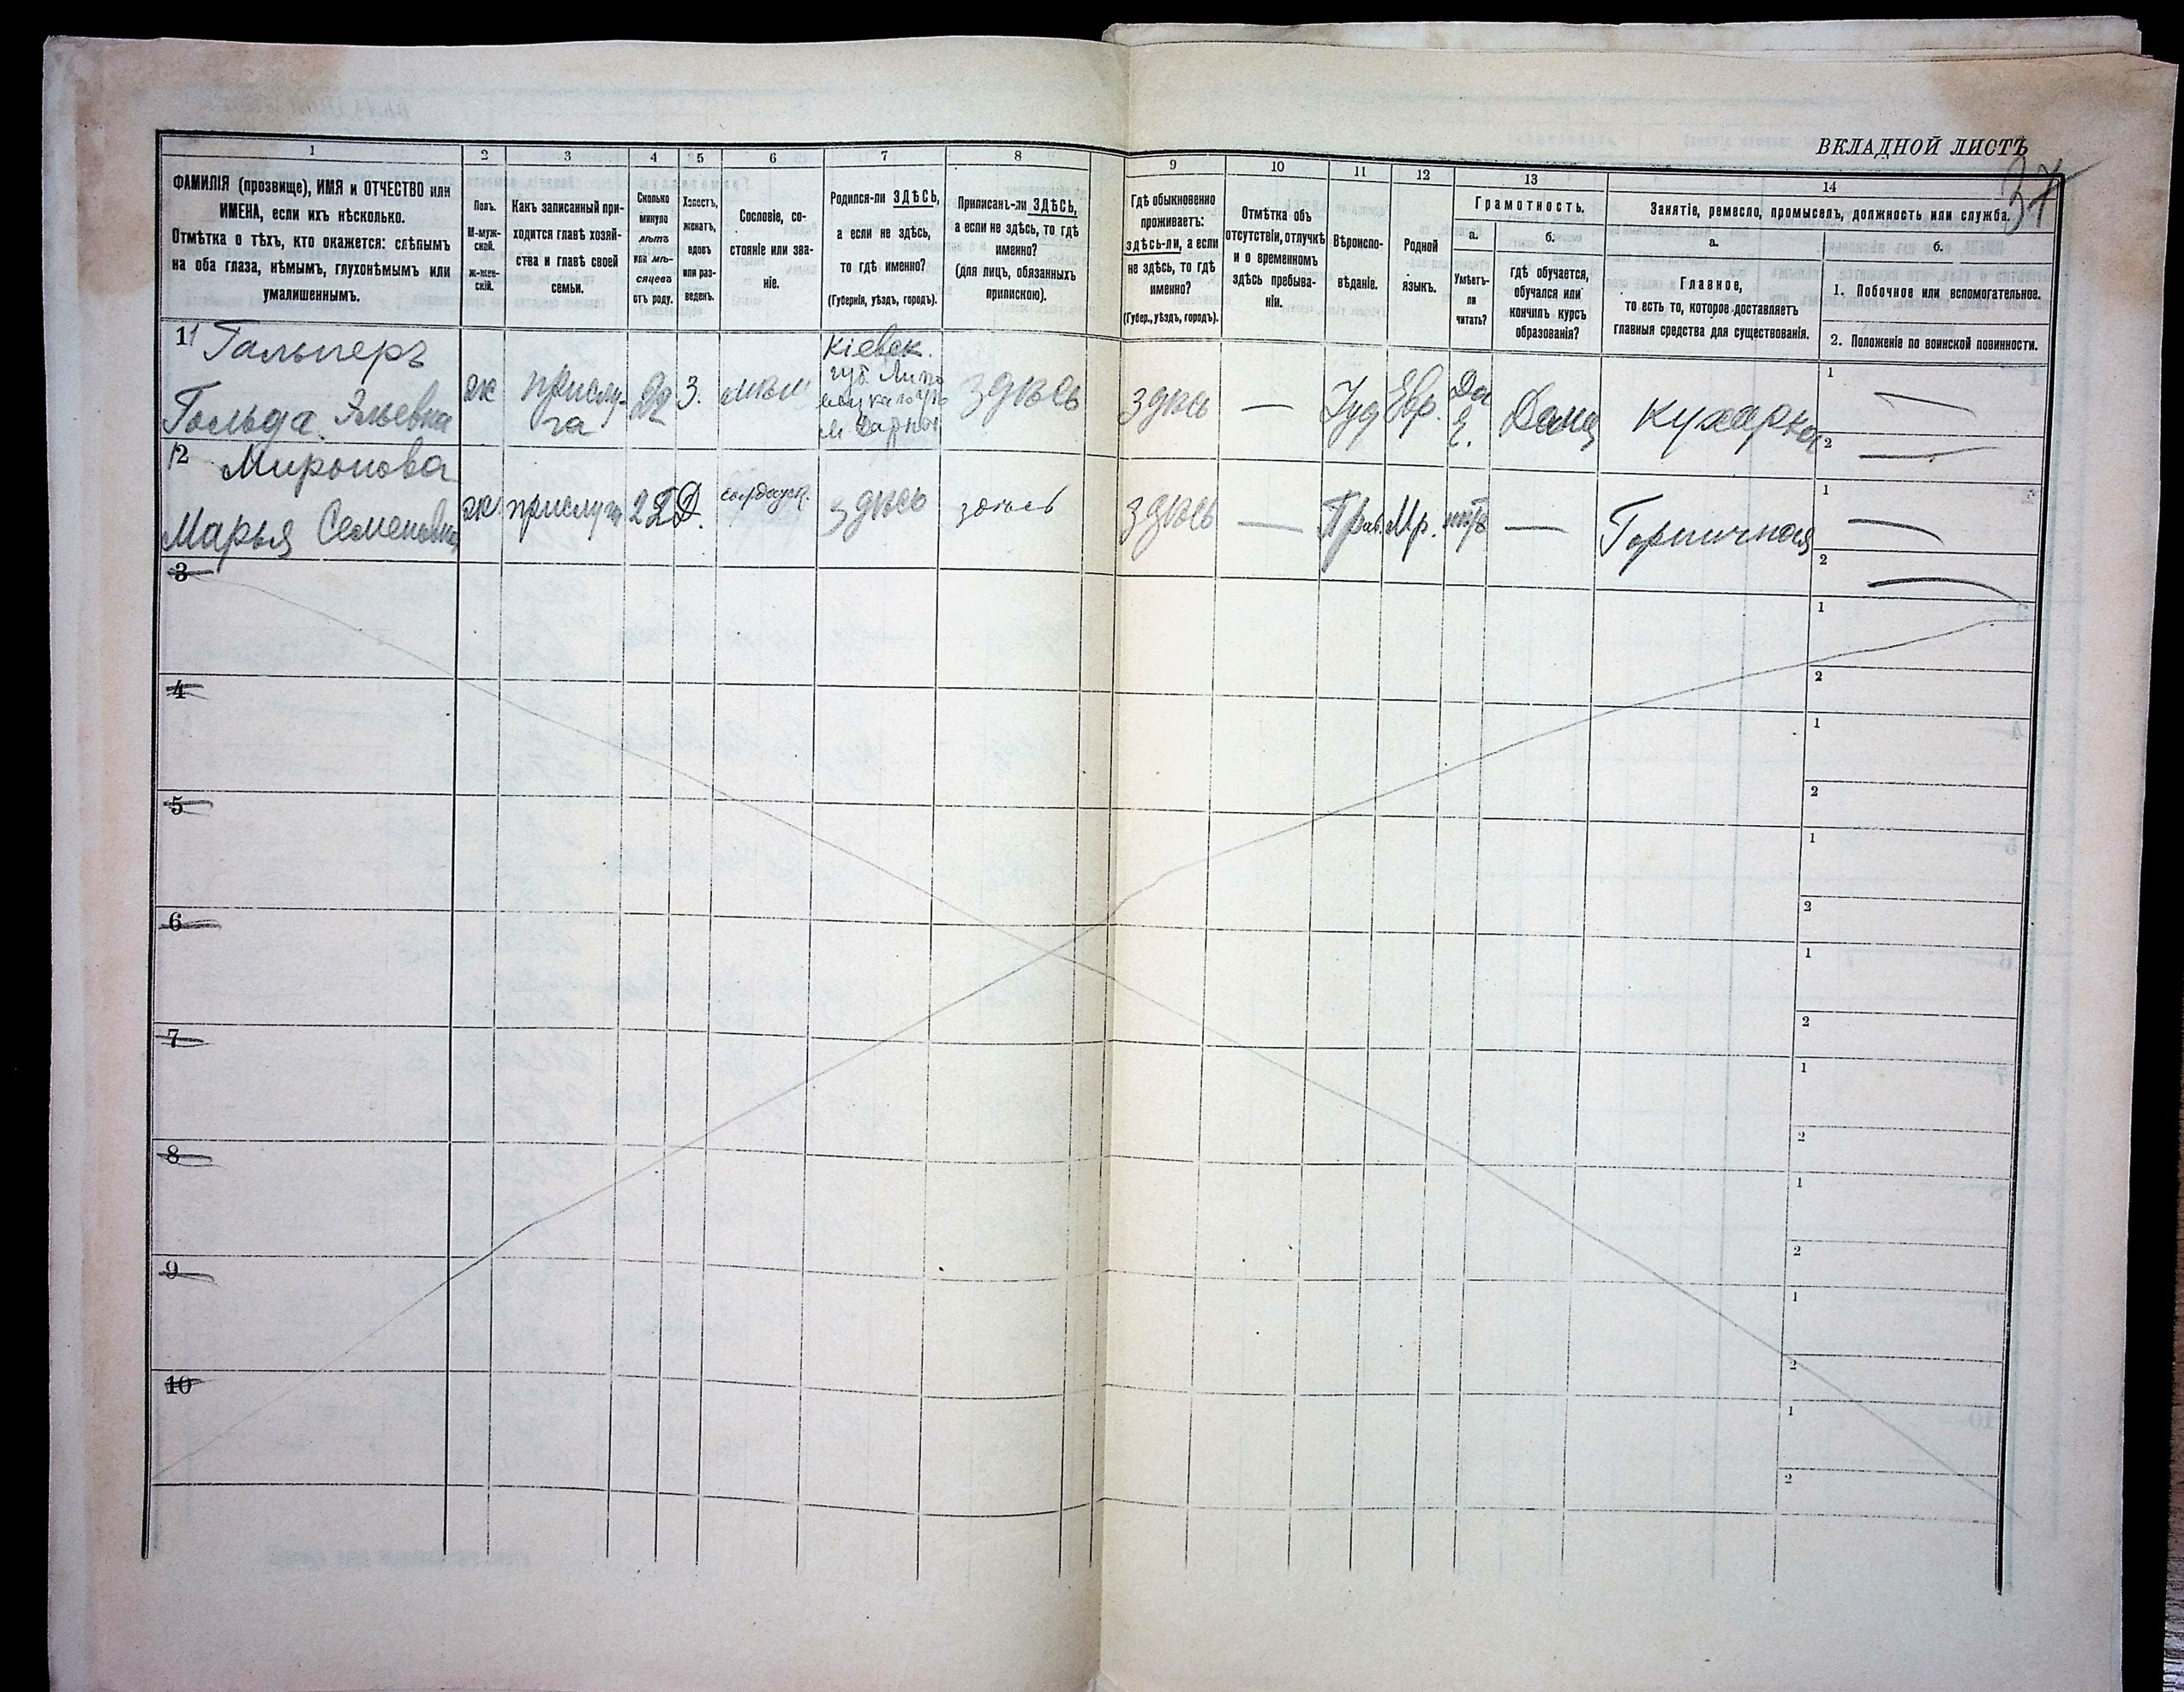 ВКЛАДНОЙ ЛИСТЪ
37
1
2
3
4
5
6
7
8
9
10
11
12
13
14
ФАМИЛІЯ (прозвище), ИМЯ и ОТЧЕСТВО или
ИМЕНА, если ихъ нѣсколько.
Отмѣтка о тѣхъ, кто окажется: слѣпымъ
на оба глаза, нѣмымъ, глухонѣмымъ или
умалишеннымъ.
Полъ.
М-муж-
ской.
ж-жен-
скій.
Какъ записанный при-
ходится главѣ хозяй-
ства и главѣ своей
семьи.
Сколько
минуло
лѣтъ
или мѣ-
сяцевъ
отъ роду.
Холостъ,
женатъ,
вдовъ
или раз-
веденъ.
Сословіе, со-
стояніе или зва-
ніе.
Родился-ли ЗДѢСЬ,
а если не здѣсь,
то гдѣ именно?
(Губернія, уѣздъ, городъ).
Приписанъ-ли ЗДѢСЬ,
а если не здѣсь, то гдѣ
именно?
(для лицъ, обязанныхъ
припискою).
Гдѣ обыкновенно
проживаетъ:
здѣсь-ли, а если
не здѣсь, то гдѣ
именно?
(Губер., уѣздъ, городъ).
Отмѣтка объ
отсутствіи, отлучкѣ
и о временномъ
здѣсь пребыва-
ніи.
Вѣроиспо-
вѣданіе.
Родной
языкъ.
Грамотность.
а.
Умѣетъ-
ли
читать?
б.
гдѣ обучается,
обучался или
кончилъ курсъ
образованія?
Занятіе, ремесло, промыселъ, должность или служба.
а.
Главное,
то есть то, которое доставляетъ
главныя средства для существованія.
б.
1. Побочное или вспомогательное.
2. Положеніе по воинской повинности.
11 Гальперъ
Гольда
ж
прислу-
га
22
З.
мѣщ
Кіевск.
губ. Липо
здѣсь
здѣсь
—
Іуд
Евр.
Да
Е.
Дома
Кухарка
1 —
2 —
12 Миронова
Марья Семеновна
ж
прислуга
22
Д.
здѣсь
здѣсь
здѣсь
—
Прав.
Мр.
нѣтъ
—
Горничная
1 —
2 —
3
1
2
4
1
2
5
1
2
6
1
2
7
1
2
8
1
2
9
1
2
10
1
2